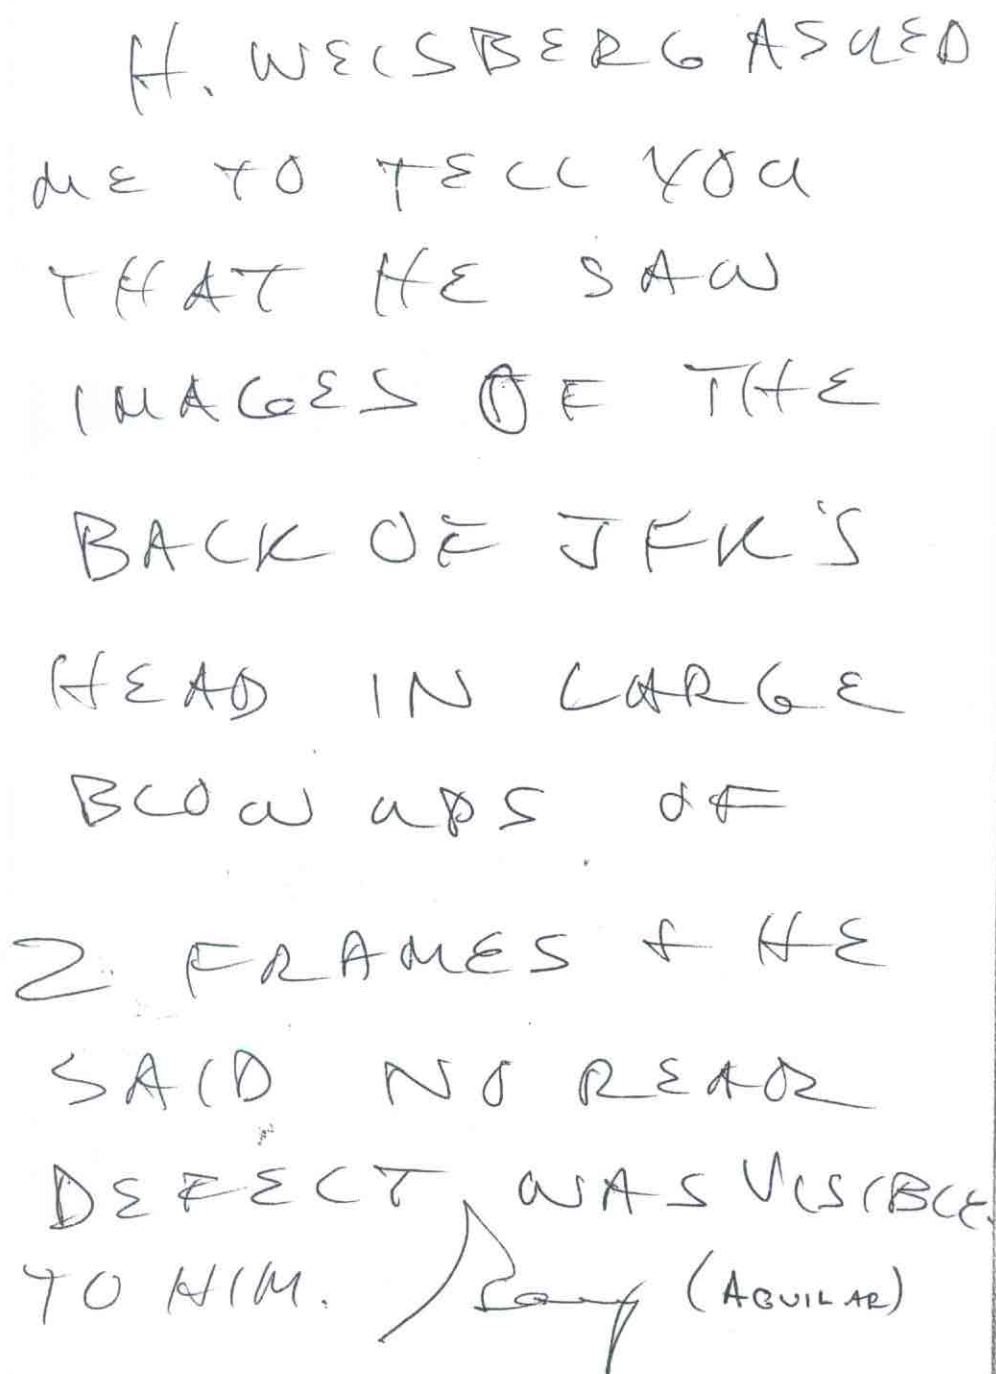 H. WEISBERG ASKED
ME TO TELL YOU
THAT HE SAW
IMAGES OF THE
BACK OF JFK'S
HEAD IN LARGE
BLOW UPS OF
Z FRAMES + HE
SAID NO REAR
DEFECT WAS VISIBLE
TO HIM. Gary (AGUILAR)